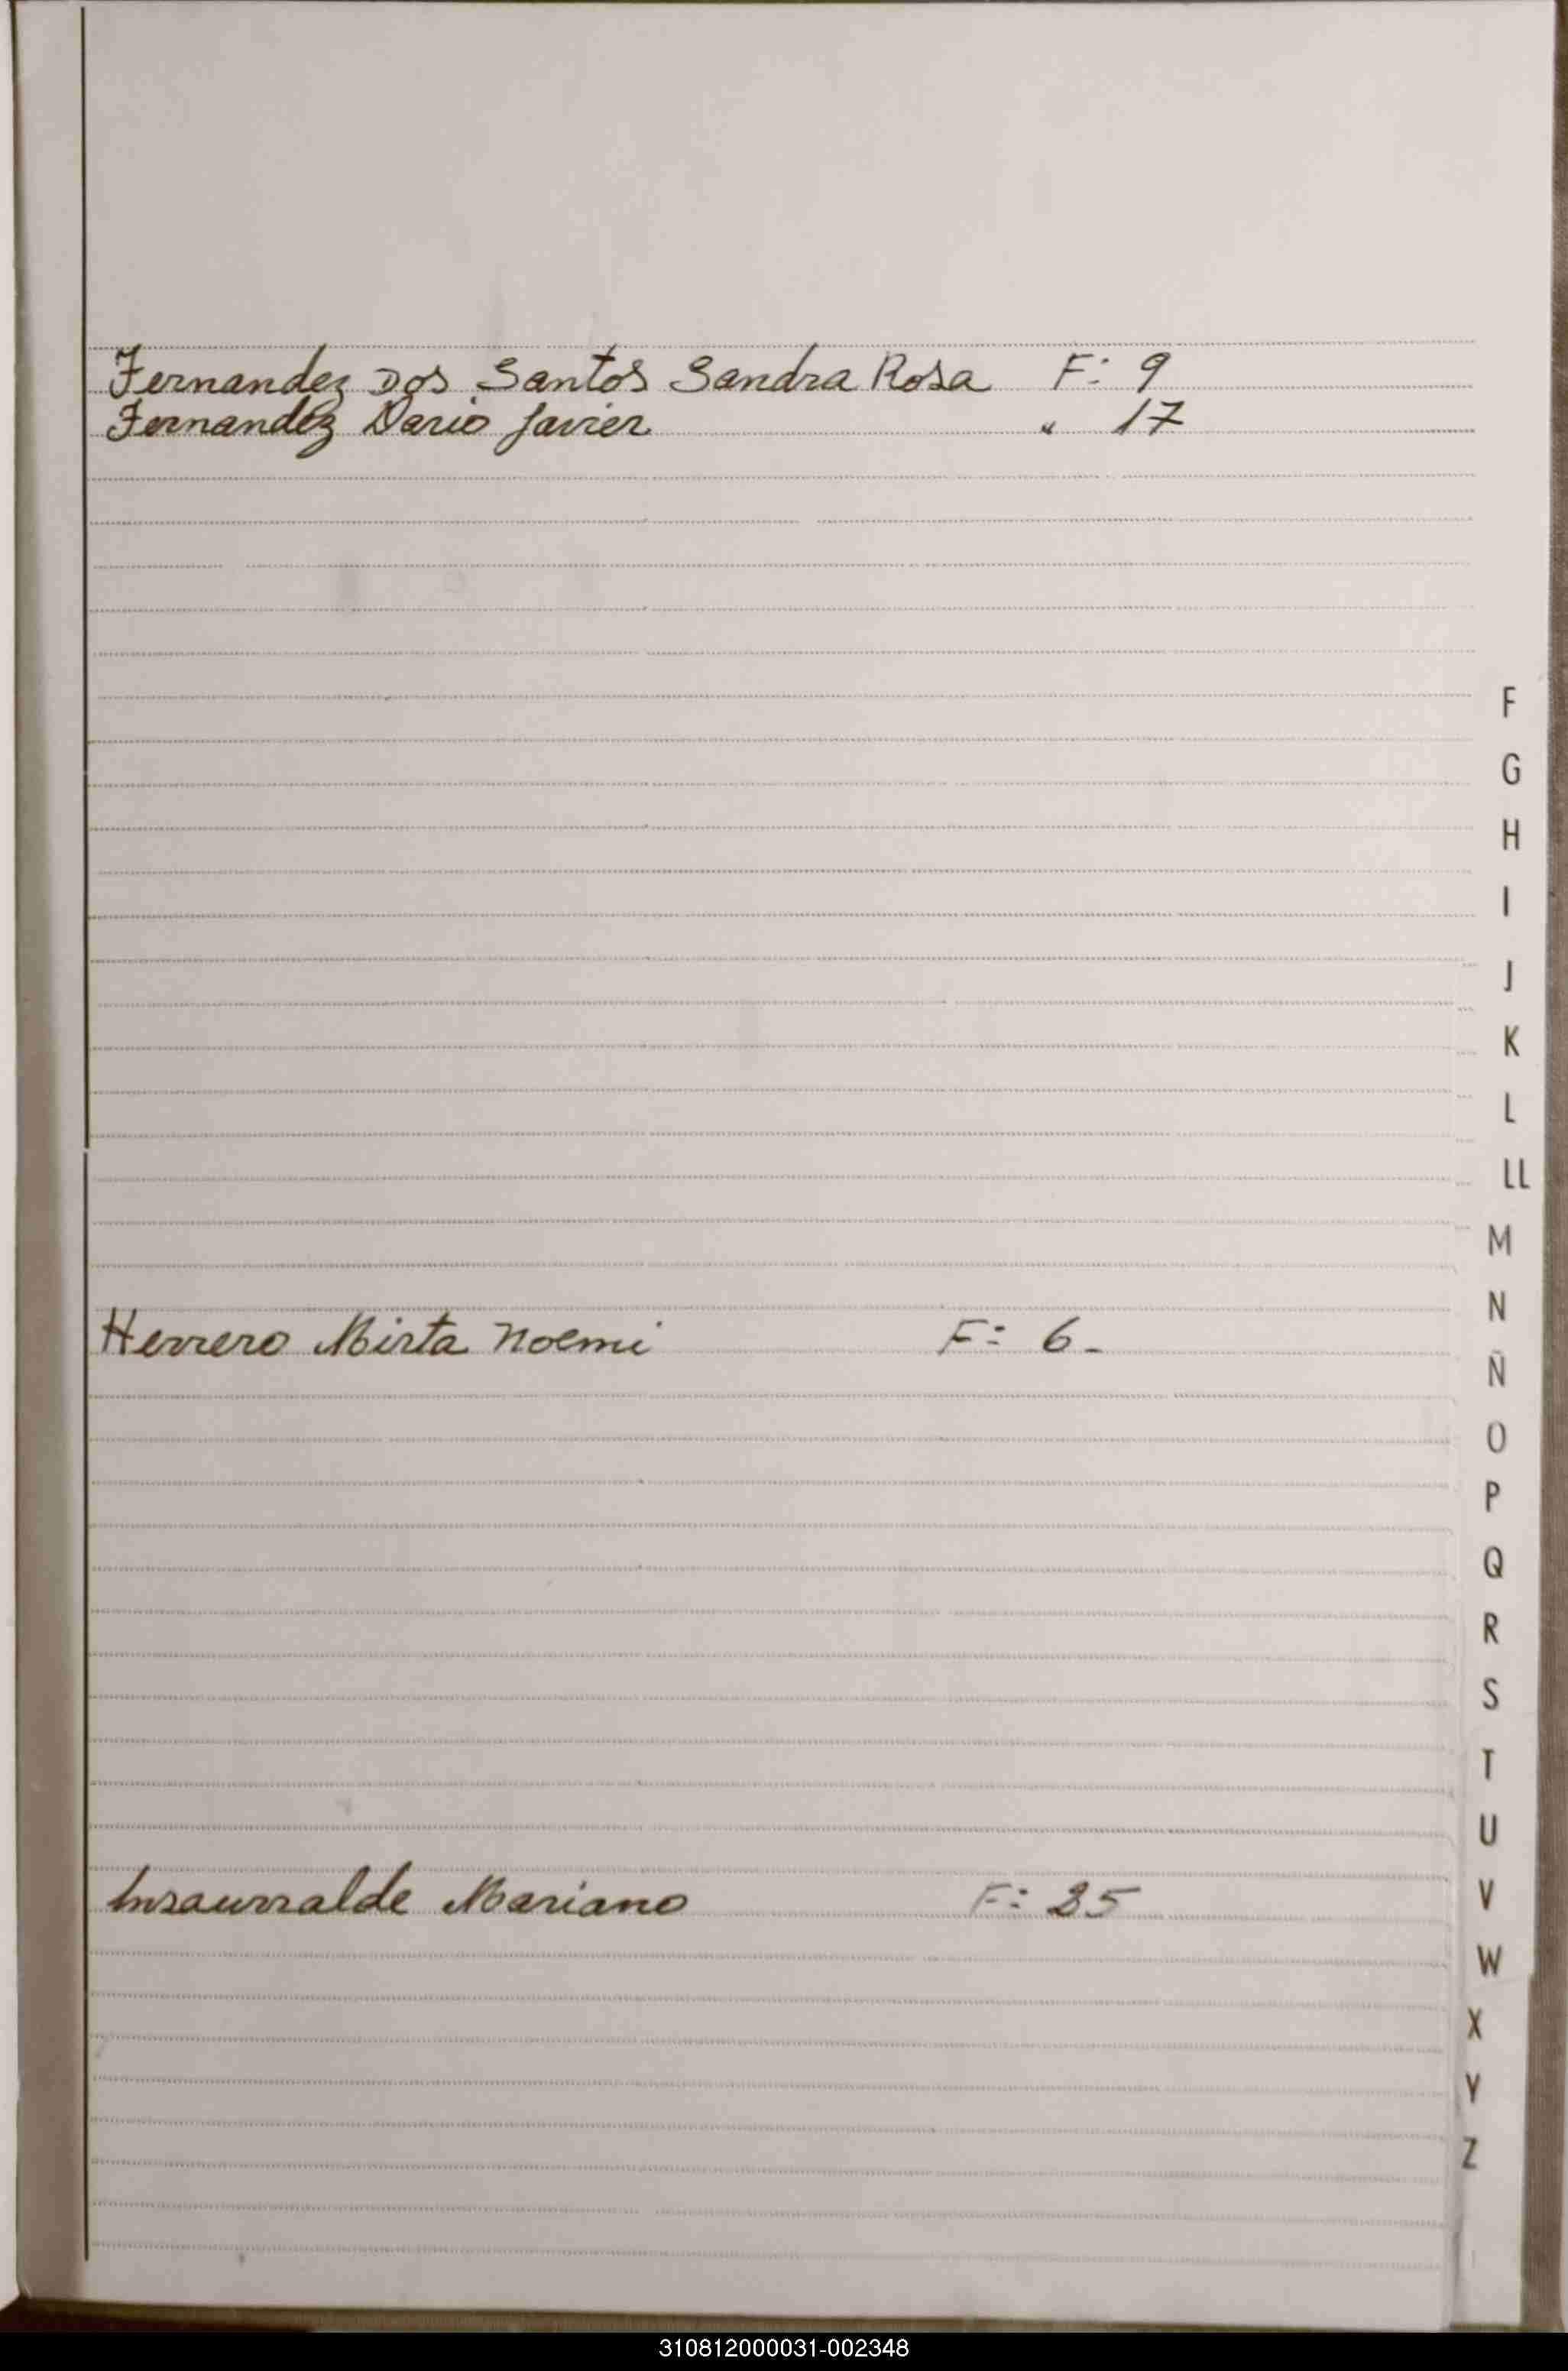 Fernandez Dos Santos Sandra Rosa F: 9
Fernandez Dario Javier " 17
F
G
H
I
J
K
L
LL
M
N
Herrero Mirta Noemi F: 6.
Ñ
O
P
Q
R
S
T
U
V
Insaurralde Mariano F: 25
W
X
Y
Z
310812000031-002348